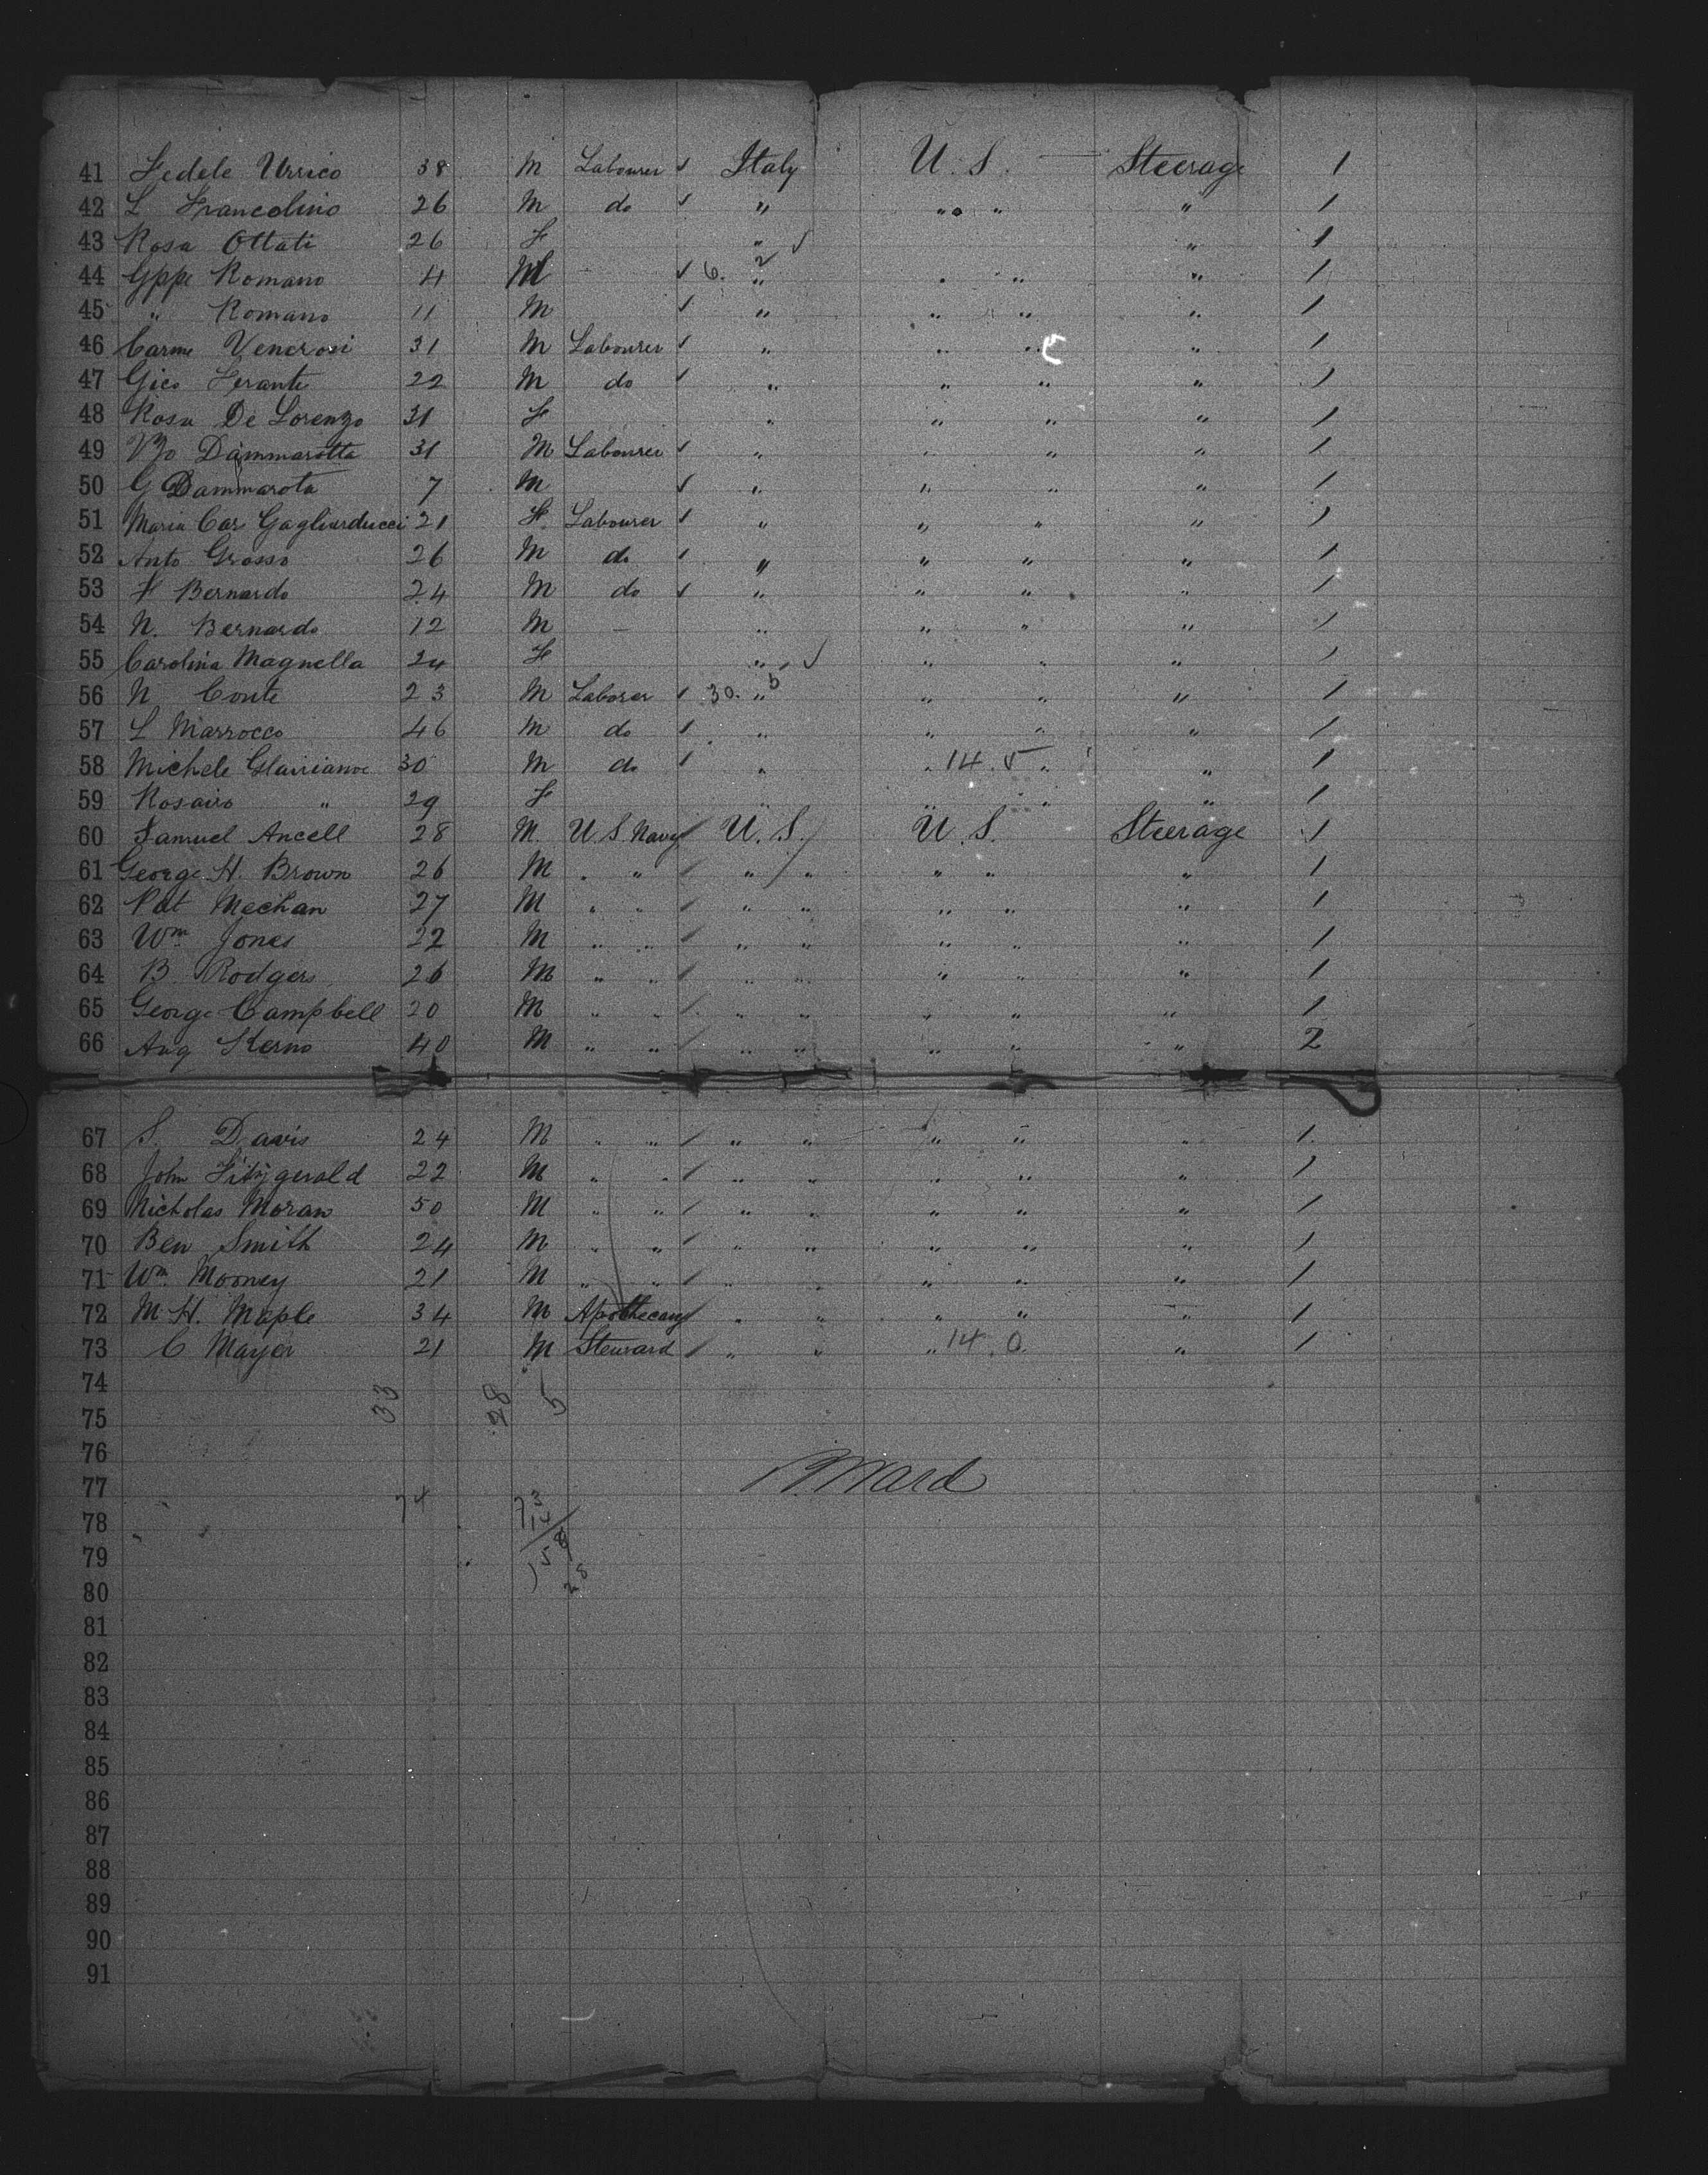 41 Fedele Urrico 38 M Labourer ✓ Italy U.S. — Steerage 1
42 L Francolino 26 M do ✓ " " " " 1
43 Rosa Ottati 26 F " ✓ " 1
44 Gppe Romano 4 M ✓ 6. 2 " " " " 1
45 " Romano 11 M ✓ " " " " 1
46 Carme Venerosi 31 M Labourer ✓ " " " " 1
47 Gico Ferante 22 M do ✓ " " " " 1
48 Rosa De Lorenzo 31 F " " " " 1
49 Vzo Dammarotta 31 M Labourer ✓ " " " " 1
50 G Dammarota 7 M ✓ " " " " 1
51 Maria Car Gagliarducci 21 F Labourer ✓ " " " " 1
52 Anto Grosso 26 M do ✓ " " " " 1
53 F Bernardo 24 M do ✓ " " " " 1
54 N. Bernardo 12 M — " " " " 1
55 Carolina Magnella 24 F " ✓ " " " 1
56 N Conte 23 M Laborer ✓ 30. " " " " 1
57 L Marrocco 46 M do ✓ " " " " 1
58 Michele 30 M do ✓ " " 14. 5 " " 1
59 Rosairo " 29 F " " " " 1
60 Samuel Ancell 28 M. U.S. Navy U.S. U.S. Steerage 1
61 George H. Brown 26 M " " " " " " " 1
62 Pat Mechan 27 M " " " " " " " 1
63 Wm Jones 22 M " " " " " " " 1
64 B. Rodgers 26 M " " " " " " " 1
65 George Campbell 20 M " " " " " " " 1
66 Aug Kerno 40 M " " " " " " " 2
67 S. Davis 24 M " " " " " " " 1
68 John Fitzgerald 22 M " " " " " " " 1
69 Nicholas Moran 50 M " " " " " " " 1
70 Ben Smith 24 M " " " " " " " 1
71 Wm. Mooney 21 M " " " " " " " 1
72 M. H. Maple 34 M Apothecary " " " " " 1
73 C Mayer 21 M Steward " " " 14. 0 " 1
74
33 28 5
75
76
Ward
77
74 73
78
79
28
80
81
82
83
84
85
86
87
88
89
90
91